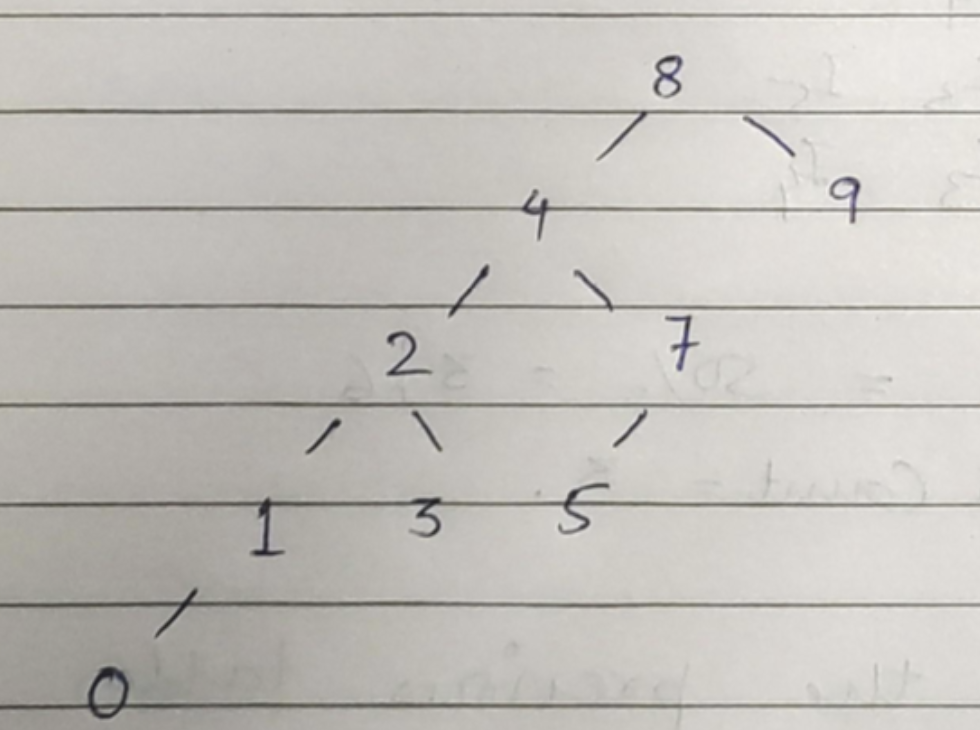 8
4 9
2 7
1 3 5
0